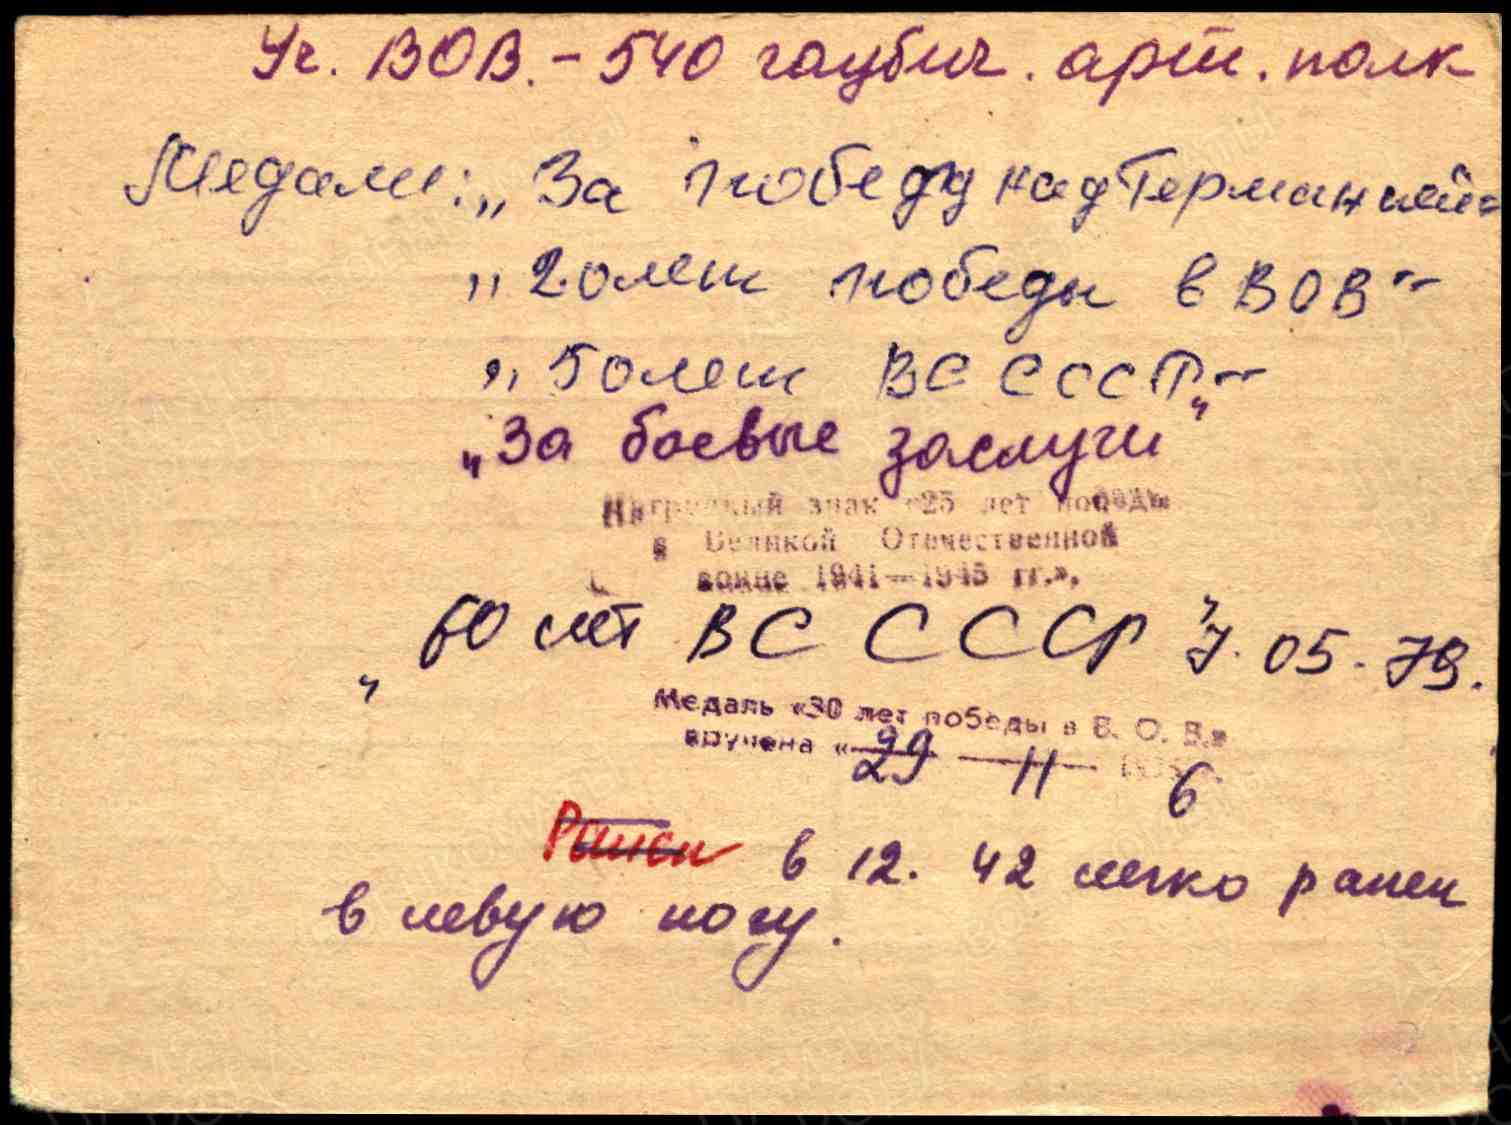 Уч. ВОВ. - 540 гаубич. арт. полк
Медали: „За победу над Германией"
„20 лет победы в ВОВ"
„50 лет ВС СССР"
„За боевые заслуги"
Нагрудный знак «25 лет победы
в Великой Отечественной
войне 1941—1945 гг.».
„60 лет ВС СССР" 7.05.79.
Медаль «30 лет победы в В. О. В.»
вручена «29 — 11 — 6
Ранен в 12. 42 легко ранен
в левую ногу.